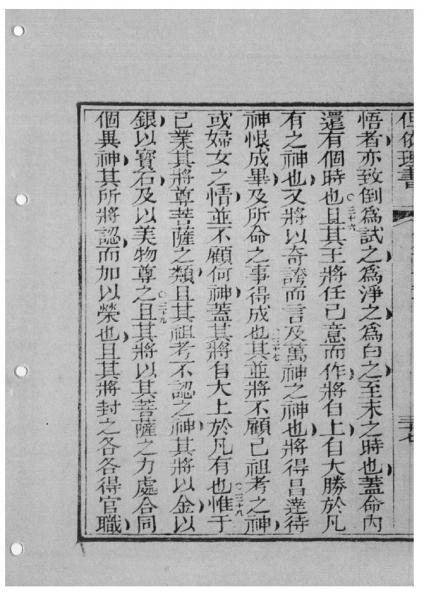 但依理書
悟者亦致倒爲試之爲淨之爲白之至末之時也蓋命內
還有個時也○三十六且其王將任己意而作將自上自大勝於凡
有之神也又將以奇誇而言及萬神之神也將得昌達待
神恨成畢及所命之事得成也○三十七其並將不顧己祖考之神
或婦女之情並不顧何神蓋其將自大上於凡有也○三十八惟于
己業其將尊菩薩之類且其祖考不認之神其將以金以
銀以寶石及以美物尊之○三十九且其將以其菩薩之力處合同
個異神其所將認而加以榮也且其將封之各各得官職